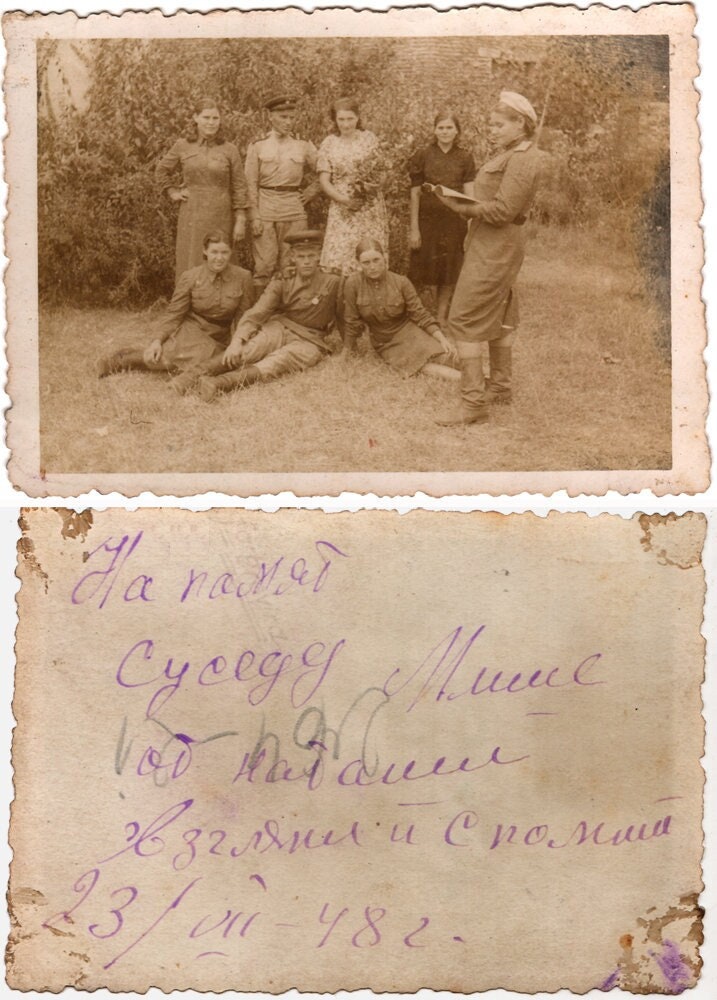 На памят
суседу Мише
от наташи
Взгляни и спомни
23/VII-48 г.